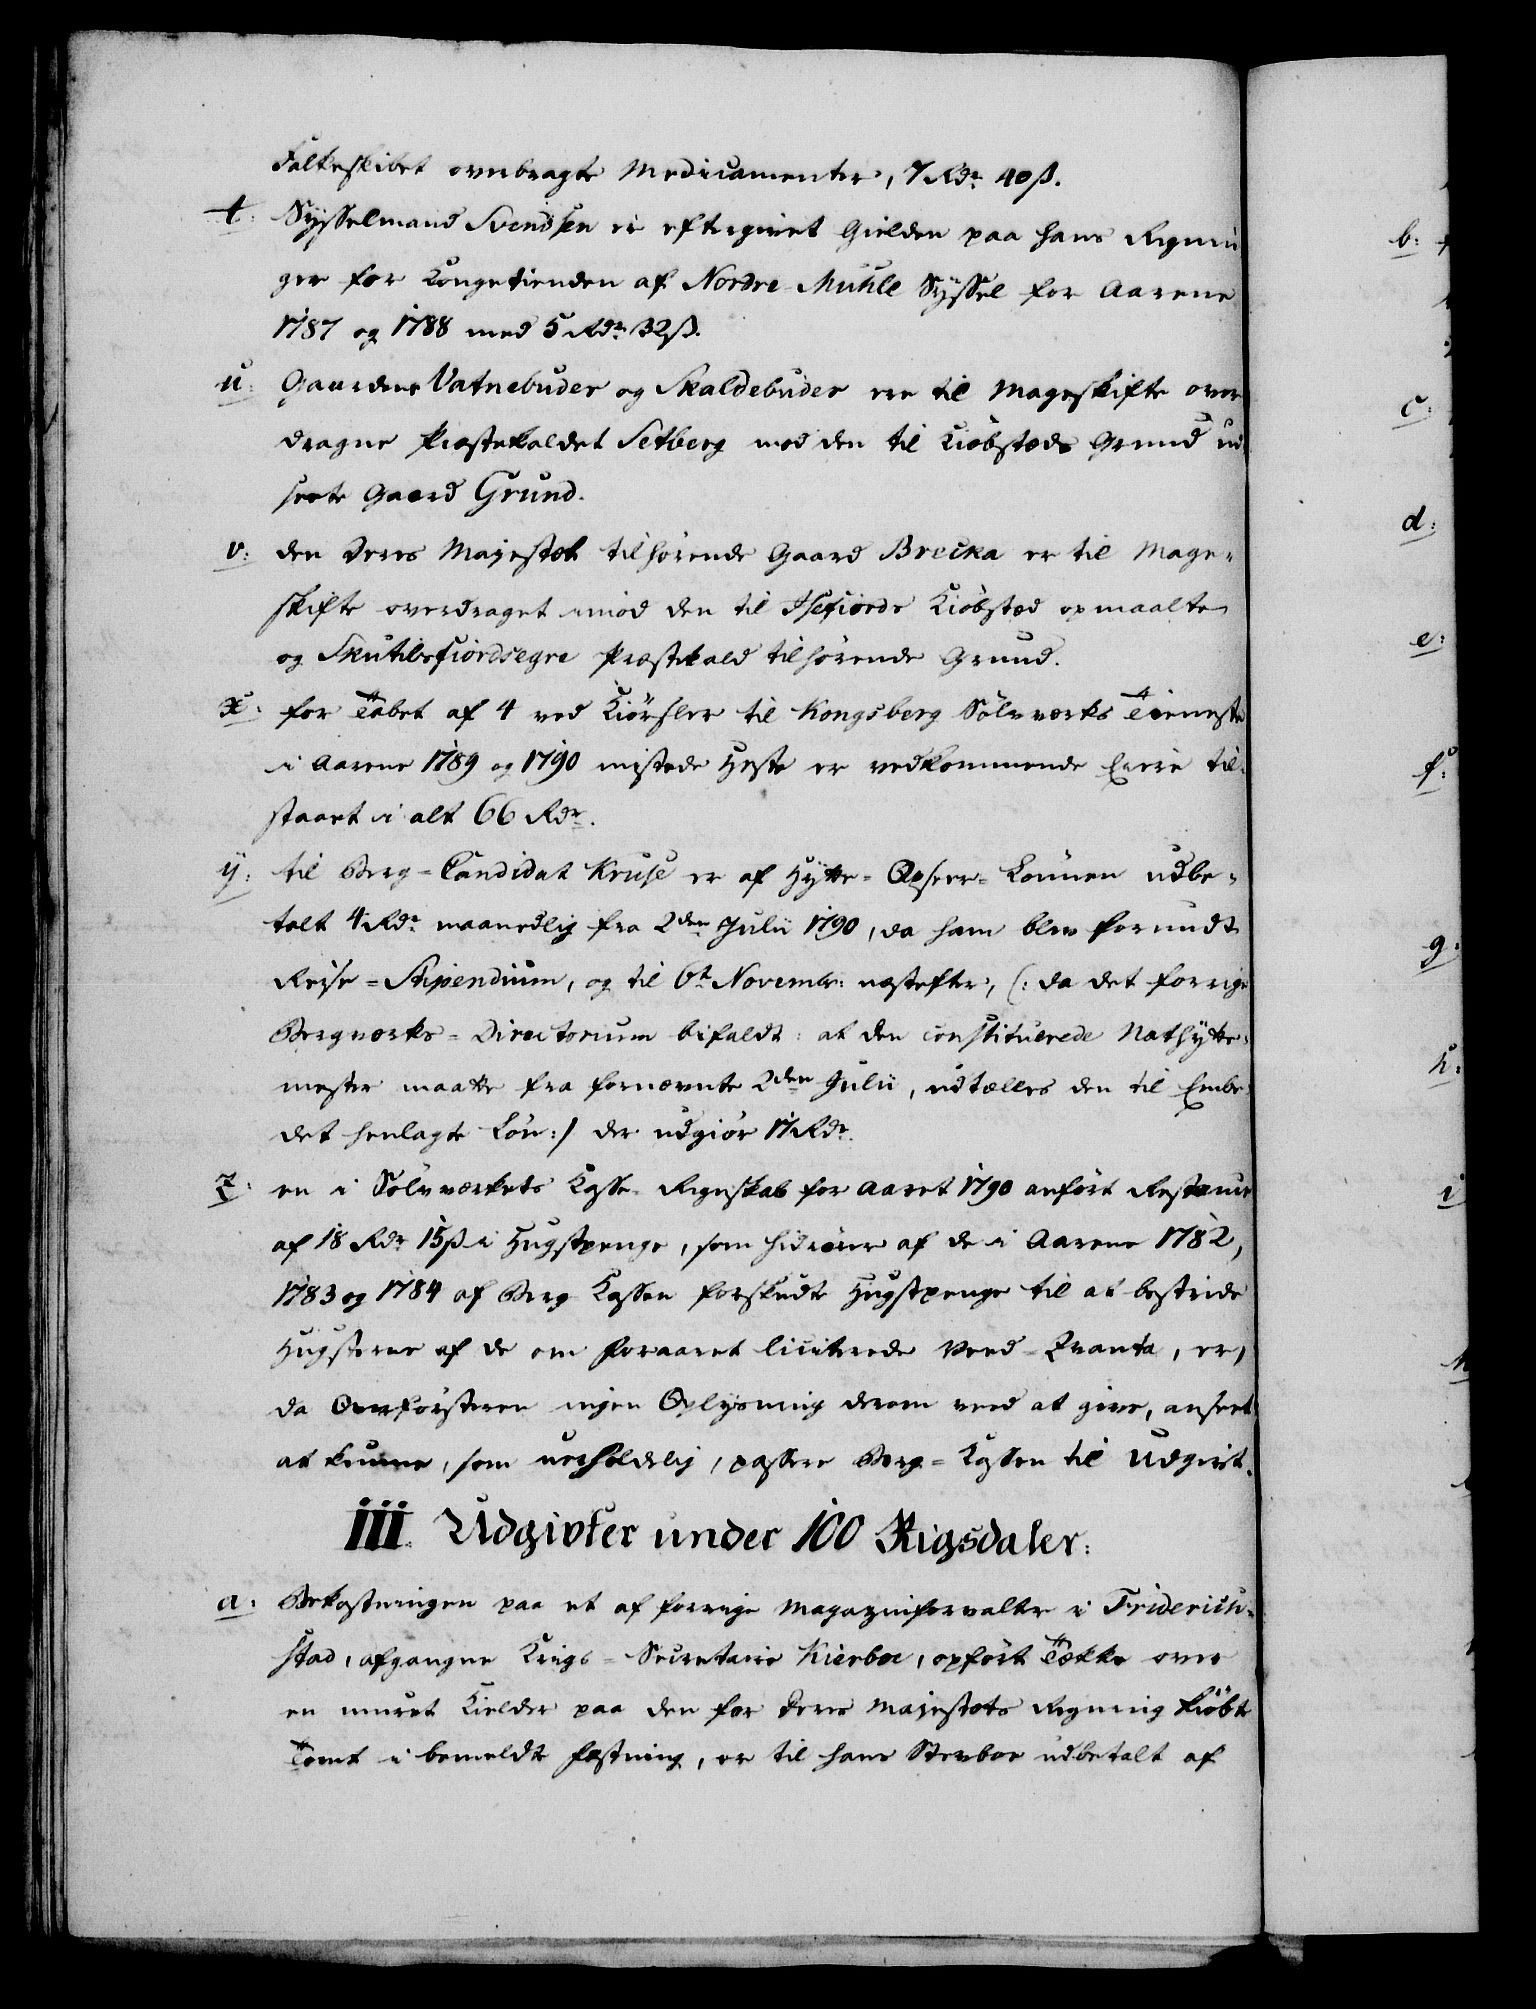 Falkeskibet overbragte Medicamenter, 7 Rdr 40 ß.
t: Sysselmand Svendsen er eftergivet Gielden paa hans Regnin
ger for Kongetienden af Nordre Muhle Syssel for Aarene
1787 og 1788 med 5 Rdr 32 ß.
u: Gaardene Vatnebuder og Skaldebuder ere til Mageskifte over
dragne Præstekaldet Setberg mod den til Kiöbstæds Grund ud
seete Gaard Grund.
v: den Deres Majestæt tilhörende Gaard Brecka er til Mage-
skifte overdraget imod den til Isefiords Kiöbstæd opmaalte
og Skutilsfiordsegre Præstekald tilhörende Grund.
x: for Tabet af 4 ved Kiörsler til Kongsberg Sölvværks Tieneste
i Aarene 1789 og 1790 mistede Heste er vedkommende Eiere til-
staaet i alt 66 Rdr.
y: til Berg-Candidat Kruse er af Hytte-Opseer-Lönnen udbe-
talt 4 Rdr maanedlig fra 2den Julii 1790, da ham blev forundt
Reise-Stipendium, og til 6t Novembr: næstefter, (: da det forrige
Bergværks-Directorium bifaldt: at den constituerede Nathytte-
mester maatte fra fornævnte 2den Julii, udtælles den til Embe
det henlagte Lön :) der udgiör 17 Rdr.
z: en i Sölvværkets Casse-Regnskab for Aaret 1790 anfört Restance
af 18 Rdr 15 ß i Hugstpenge, som hidrörer af de i Aarene 1782,
1783 og 1784 af Berg-Cassen forskudte Hugstpenge til at bestride
Hugsterne af de om Foraaret liciterede Veed-Qvanta, er,
da Overförsteren ingen Oplysning derom veed at give, anseet
at kunne, som uerholdelig, passere Berg-Cassen til Udgivt.
III. Udgivter under 100 Rigsdaler:
a: Bekostningen paa et af forrige Magazinforvalter i Friderich-
stad, afgangne Krigs-Secretaire Kierboe, opfört Tække over
en muret Kielder paa den for Deres Majestæts Regning kiöbte
Tomt i bemeldte Fæstning, er til hans Stervboe udbetalt af
b:
c:
d:
e:
f:
g:
h:
i